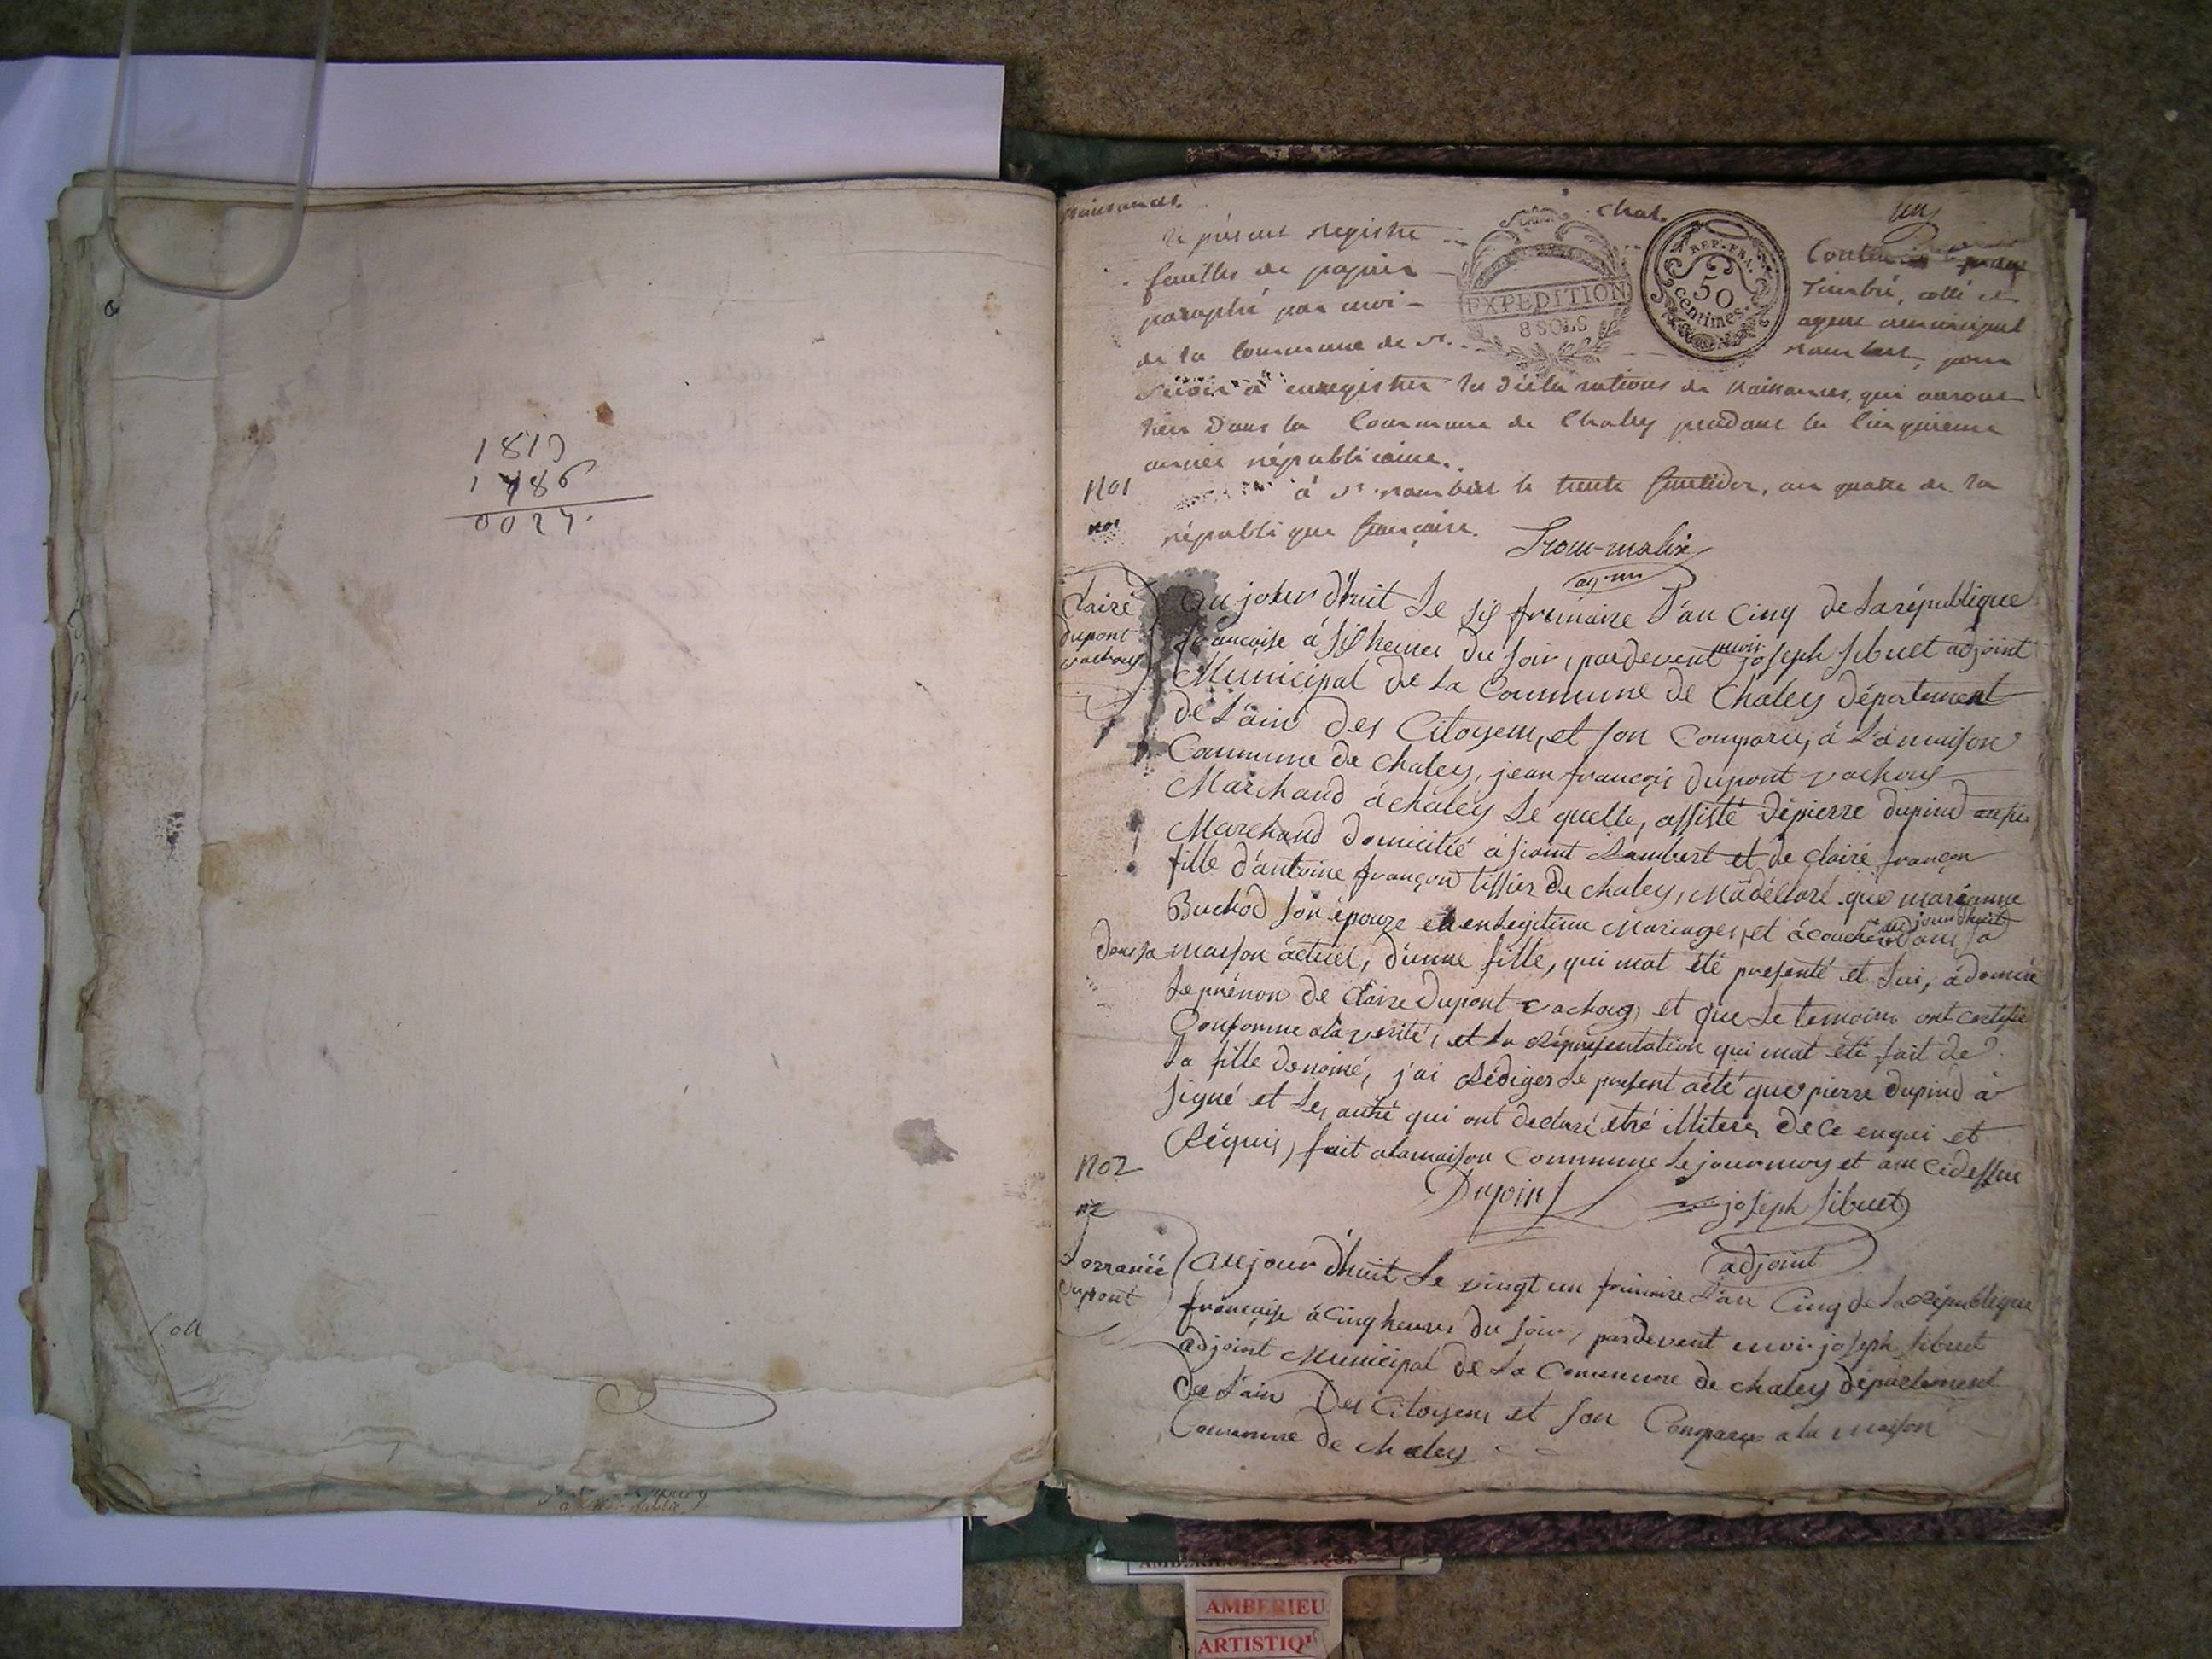 1813
1786
0027.
naissances.
Chal.
un
le présent registre
Contenant
feuilles de papier
timbré, cotté et
paraphé par moi
agent municipal
de la Commune de st.
rambert, pour
EXPEDITION
8 SOLS
REP. FRA.
50
centimes
servir à enregistrer les déclarations de naissances, qui auront
lieu dans la Commune de Chaley pendant la Cinquieme
année républicaine.
No1
à st. rambert le trente fructidor, an quatre de la
no1
république française.
Trou-malix
ag. m
Claire
dupont
vachoux
Au jourd'huit Le six frimaire L'an Cinq de La république
francaise à six heures du soir, pardevent moi joseph sibuet adjoint
Municipal de La Commune de Chaley département
de L'ain des Citoyens, et son Comparus, à La maison
Commune de chaley, jean françois dupont vachoux
Marchand à chaley Le quelle, assisté de pierre dupind
Marchand domicilié à saint Rambert et de Claire françon
fille d'antoine françon tissier de chaley, mà déclaré que marianne
Buchod son épouze en Legitime Mariages, et àcouchée aujourdhuit dans sa
dans sa maison actuel, d'unne fille, qui mat été presenté et Lui, à donnée
Le prénon de Claire dupont vachoux, et que Le temoins ont certifié
Conforme à la verité, et La Représentation qui mat été fait de
La fille denomé, j'ai Rédiger Le present acté que pierre dupind à
signé et Les autré qui ont declaré etré illiteres de ce enqui et
Réquis, fait a la maison Commune Le jour moys et an Cidessue
Dupoin
joseph sibuet
adjoint
No2
n2
Lorranée
dupont
aujourd'huit Le vingt un frimaire L'an Cinq de La république
française à Cinq heures du soir, pardevent moi joseph sibuet
adjoint Municipal de La Commune de chaley département
de L'ain Des Citoyens et son Comparu a la maison
Commune de chaley
AMBERIEU
ARTISTIQU